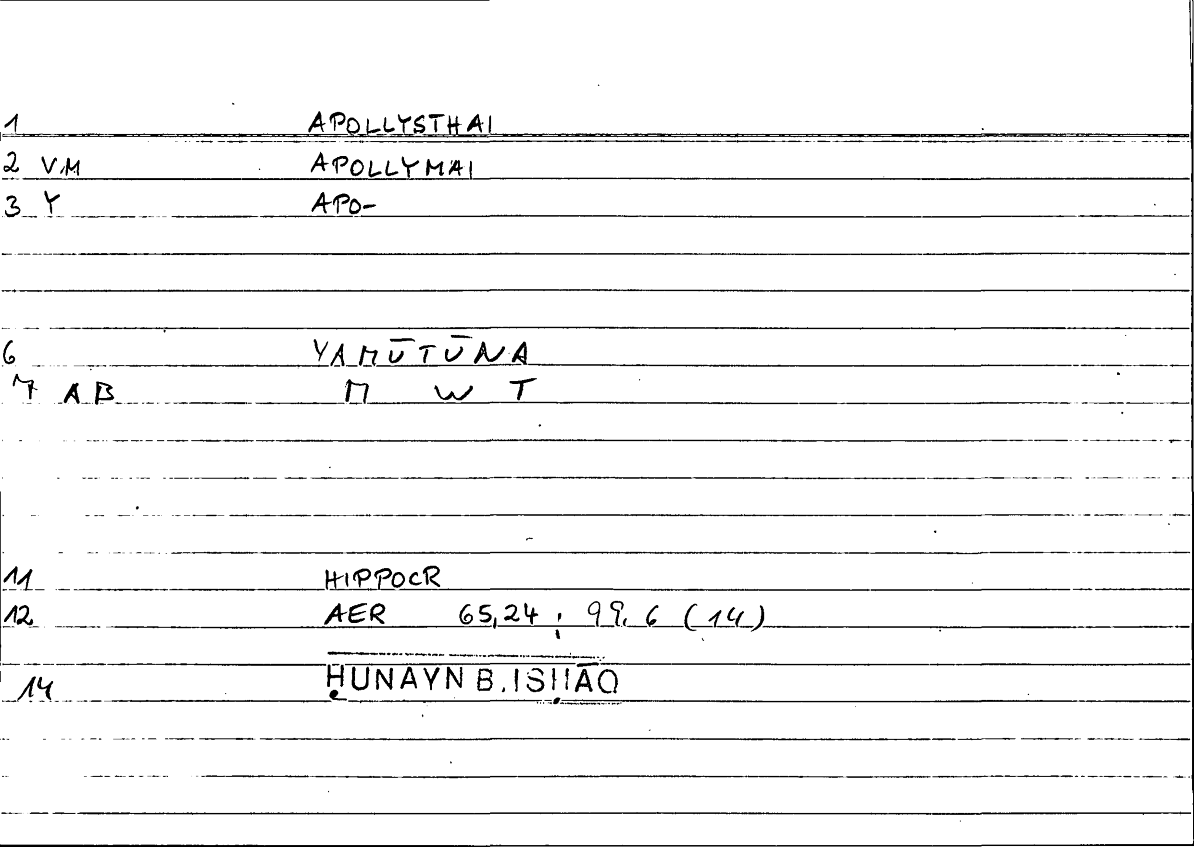 1 APOLLYSTHAI
2 VM APOLLYMAI
3 Y APO-
6 YAMŪTŪNA
7 AB M W T
11 HIPPOCR
12 AER 65,24 ; 99,6 (14)
14 ḤUNAYN B.ISḤĀQ